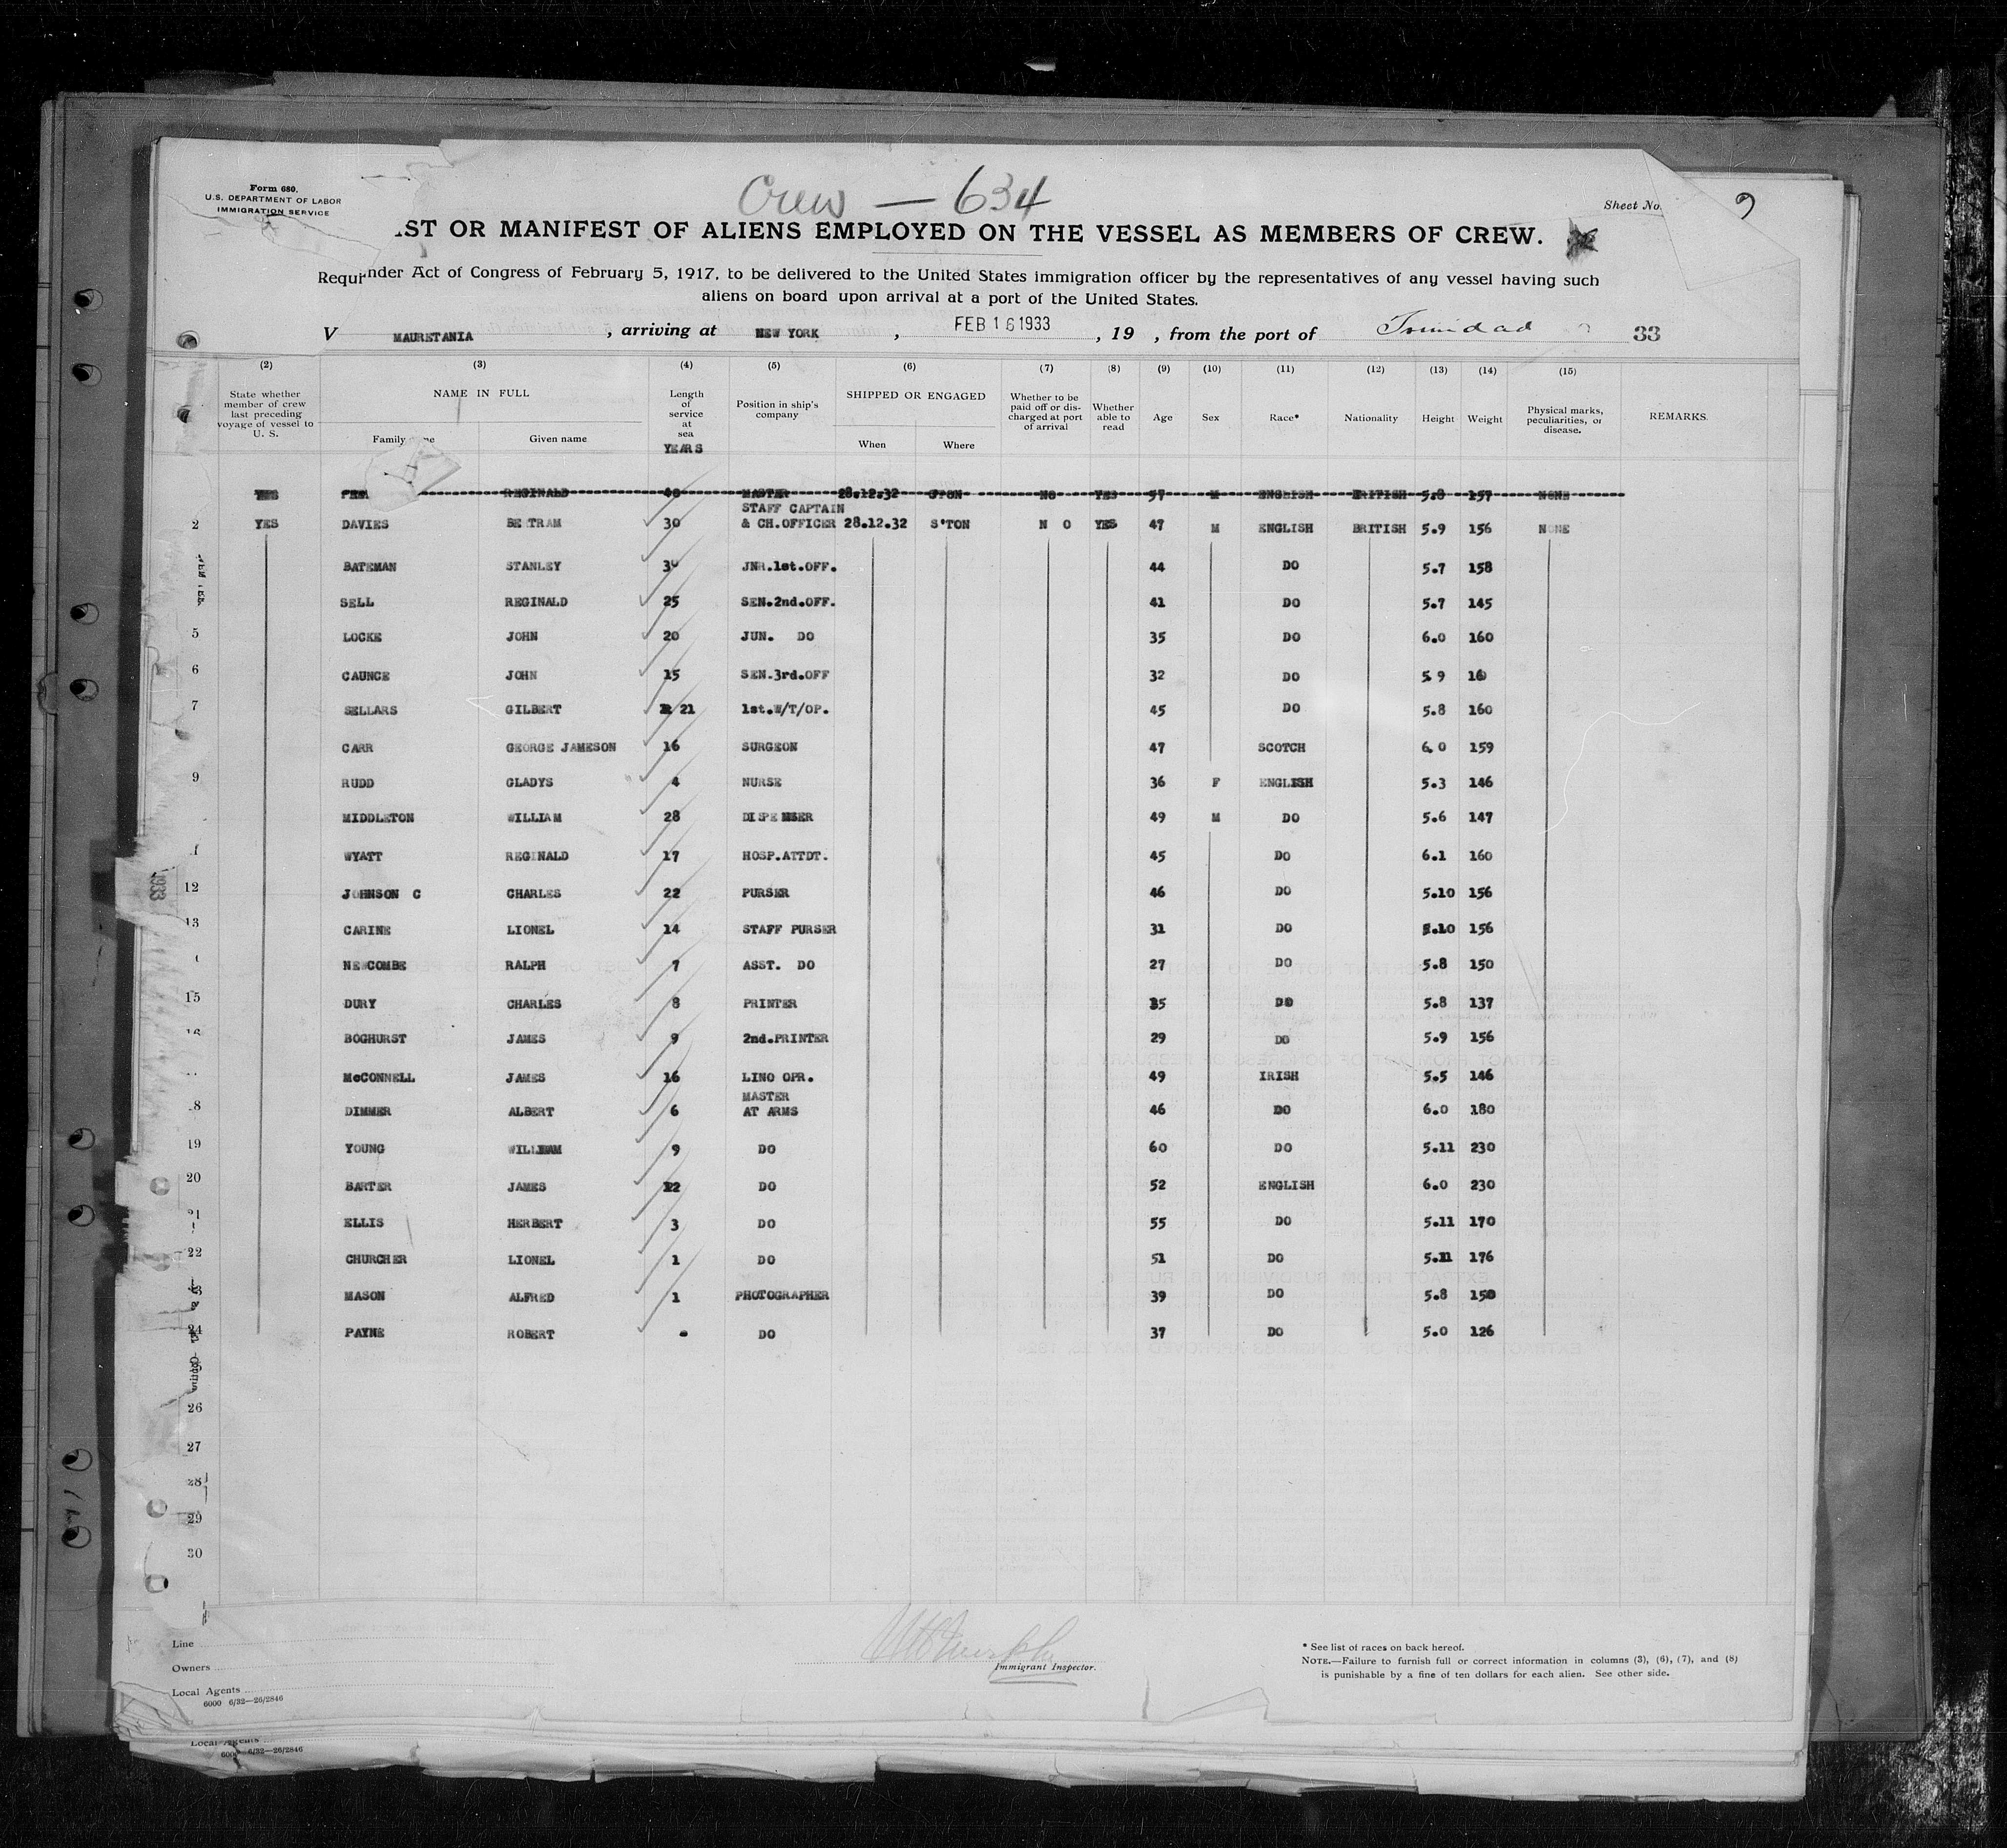 Crew — 634
Form 680.
U.S. DEPARTMENT OF LABOR
IMMIGRATION SERVICE
Sheet No.
ST OR MANIFEST OF ALIENS EMPLOYED ON THE VESSEL AS MEMBERS OF CREW.
Requi nder Act of Congress of February 5, 1917, to be delivered to the United States immigration officer by the representatives of any vessel having such
aliens on board upon arrival at a port of the United States.
V MAURETANIA , arriving at NEW YORK , FEB 16 1933 , 19 , from the port of Trinidad 33
(2) (3) (4) (5) (6) (7) (8) (9) (10) (11) (12) (13) (14) (15)
State whether member of crew last preceding voyage of vessel to U. S. NAME IN FULL Length of service at sea Position in ship's company SHIPPED OR ENGAGED Whether to be paid off or discharged at port of arrival Whether able to read Age Sex Race* Nationality Height Weight Physical marks, peculiarities, or disease. REMARKS.
Family Given name YEARS When Where
YES REGINALD 40 MASTER 28.12.32 S'TON NO YES 57 M ENGLISH BRITISH 5.8 157 NONE
2 YES DAVIES BE TRAM 30 STAFF CAPTAIN & CH.OFFICER 28.12.32 S'TON N O YES 47 M ENGLISH BRITISH 5.9 156 NONE
BATEMAN STANLEY JNR.1st.OFF. 44 DO 5.7 158
SELL REGINALD 25 SEN.2nd.OFF. 41 DO 5.7 145
5 LOCKE JOHN 20 JUN. DO 35 DO 6.0 160
6 CAUNCE JOHN 15 SEN.3rd.OFF 32 DO 5 9
7 SELLARS GILBERT 21 1st.W/T/OP. 45 DO 5.8 160
CARR GEORGE JAMESON 16 SURGEON 47 SCOTCH 6.0 159
9 RUDD GLADYS 4 NURSE 36 F ENGLISH 5.3 146
MIDDLETON WILLIAM 28 DISPENSER 49 M DO 5.6 147
WYATT REGINALD 17 HOSP.ATTDT. 45 DO 6.1 160
12 JOHNSON C CHARLES 22 PURSER 46 DO 5.10 156
13 CARINE LIONEL 14 STAFF PURSER 31 DO 5.10 156
NEWCOMBE RALPH 7 ASST. DO 27 DO 5.8 150
15 DURY CHARLES 8 PRINTER DO 5.8 137
BOGHURST JAMES 9 2nd.PRINTER 29 DO 5.9 156
McCONNELL JAMES 16 LINO OPR. 49 IRISH 5.5 146
8 DIMMER ALBERT 6 MASTER AT ARMS 46 DO 6.0 180
19 YOUNG WILLIAM 9 DO 60 DO 5.11 230
20 BARTER JAMES DO 52 ENGLISH 6.0 230
21 ELLIS HERBERT 3 DO 55 DO 5.11 170
22 CHURCHER LIONEL 1 DO 51 DO 5.11 176
MASON ALFRED 1 PHOTOGRAPHER 39 DO 5.8 150
24 PAYNE ROBERT - DO 37 DO 5.0 126
26
27
28
29
30
Line
Owners
Local Agents
6000 6/32—26/2846
Immigrant Inspector.
* See list of races on back hereof.
NOTE.—Failure to furnish full or correct information in columns (3), (6), (7), and (8)
is punishable by a fine of ten dollars for each alien. See other side.
Local Agents
6000 6/32—26/2846